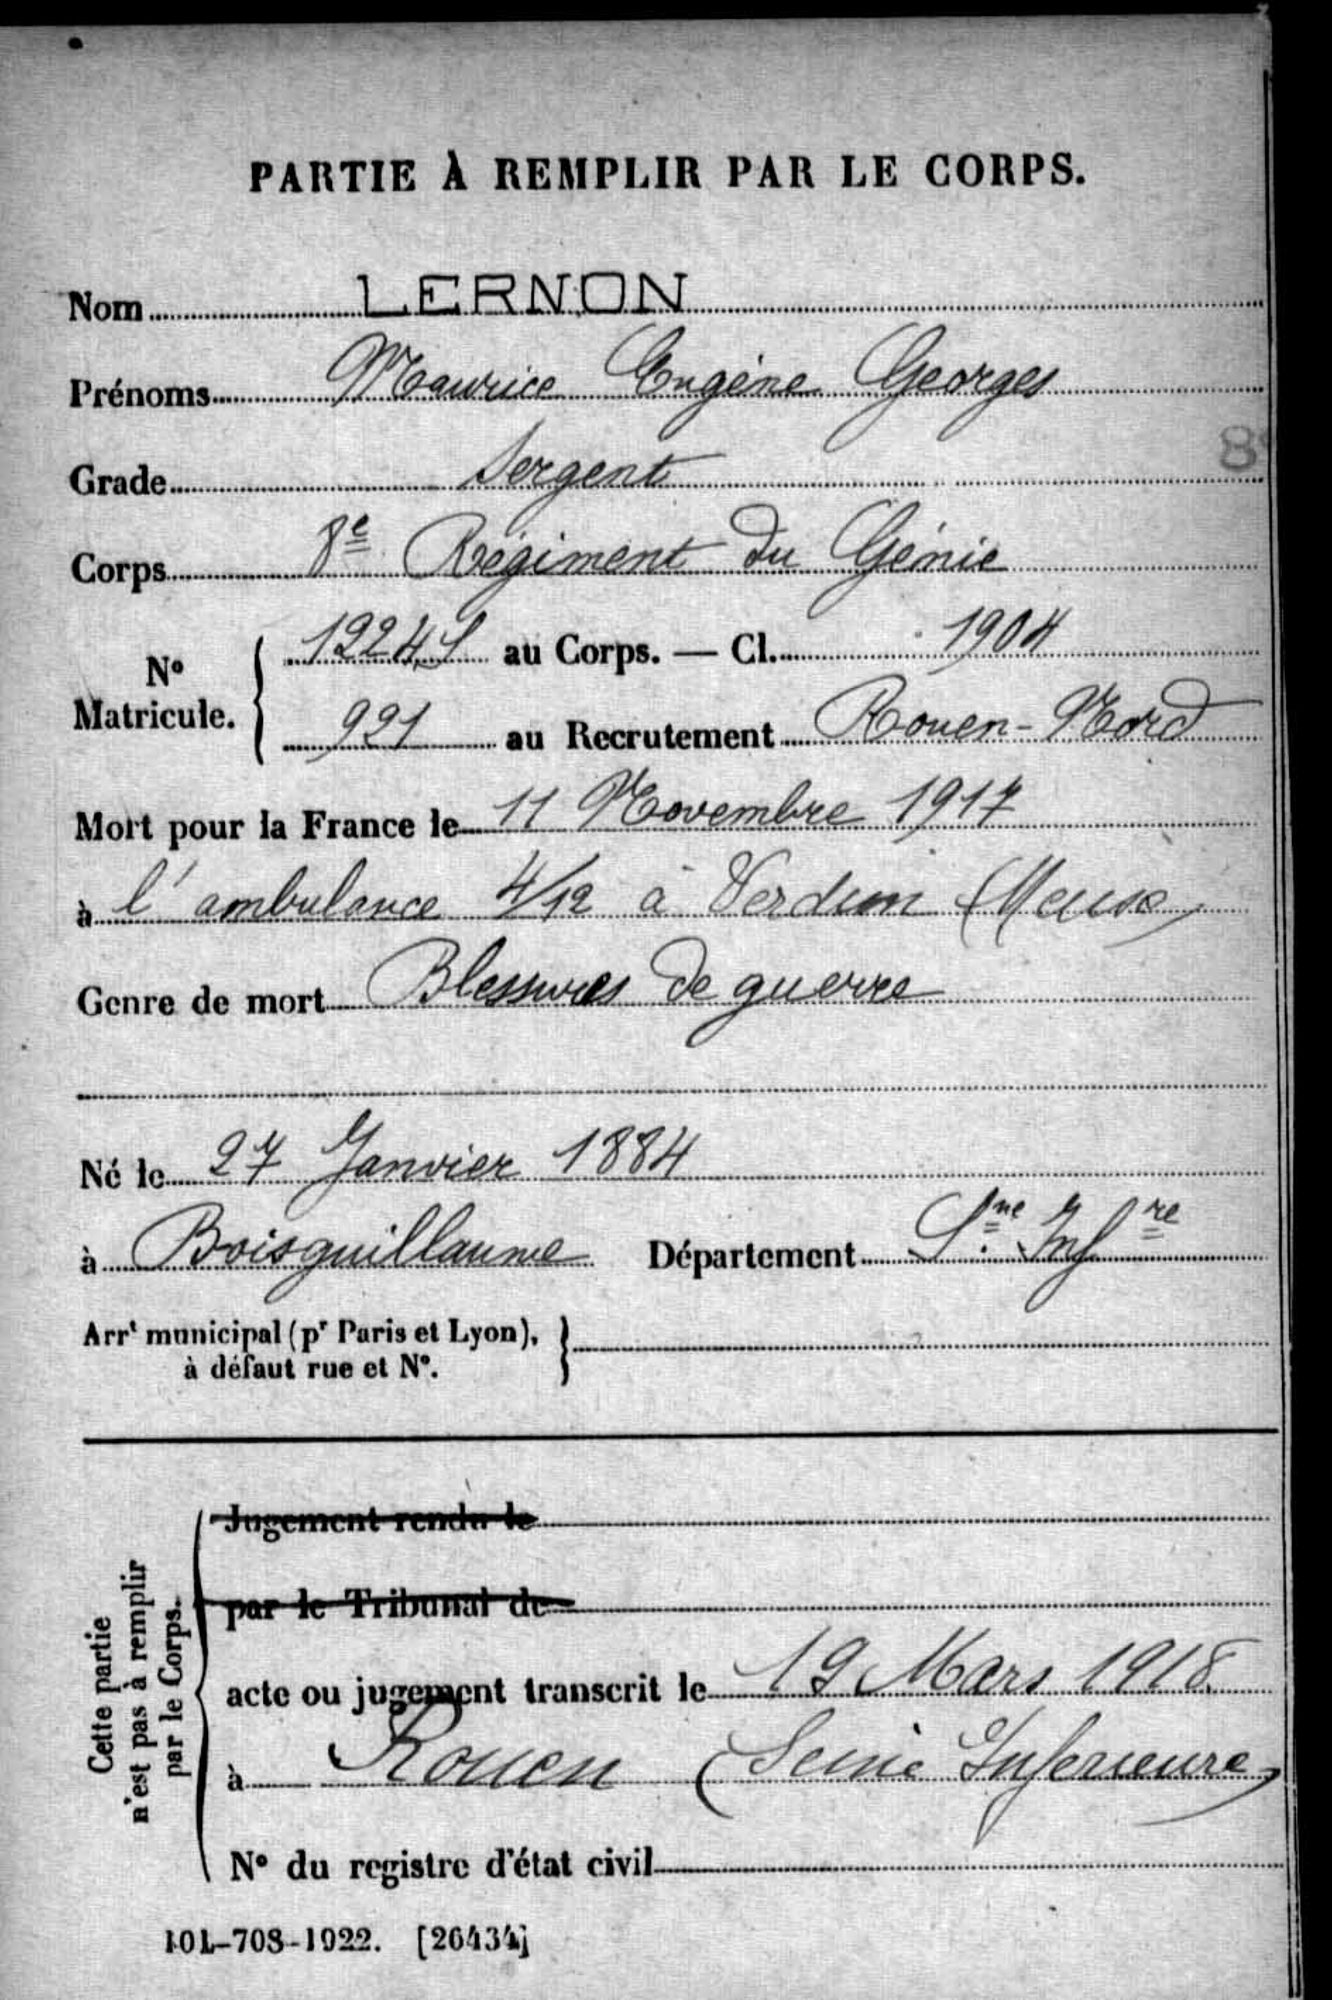 PARTIE À REMPLIR PAR LE CORPS.
Nom LERNON
Prénoms Maurice Eugène Georges
Grade Sergent
8
Corps 8e Régiment du Génie
N° Matricule. 
au Corps. — Cl. 1904
991 au Recrutement Rouen-Nord
Mort pour la France le 11 Novembre 1917
à l'ambulance 4/12 à Verdun (Meuse)
Genre de mort Blessures de guerre
Né le 27 Janvier 1884
à Boisguillaume Département Sne Infre
Arrt municipal (pr Paris et Lyon),
à défaut rue et N°.
Cette partie
n'est pas à remplir
par le Corps.
Jugement rendu le
par le Tribunal de
acte ou jugement transcrit le 19 Mars 1918.
à Rouen (Seine Inférieure)
N° du registre d'état civil
101-708-1922. [26434]